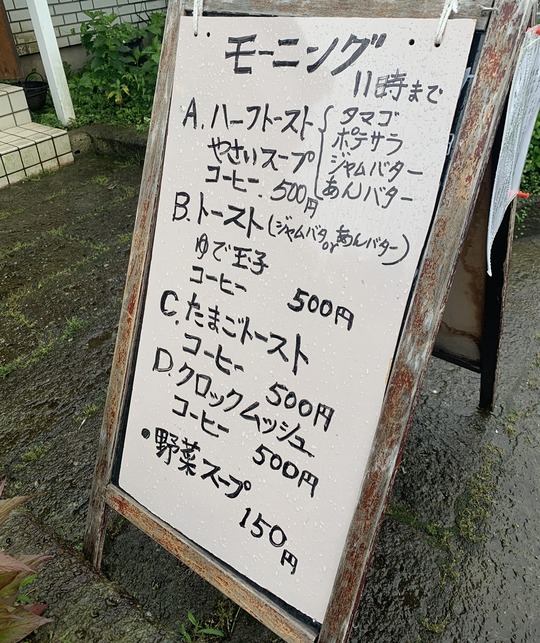 モーニング
11時まで
A. ハーフトースト{タマゴ
ポテサラ
ジャムバター
あんバター
やさいスープ
コーヒー 500円
B. トースト(ジャムバタ or あんバター)
ゆで玉子
コーヒー
500円
C. たまごトースト
コーヒー
500円
D. クロックムッシュ
コーヒー
500円
●野菜スープ
150円